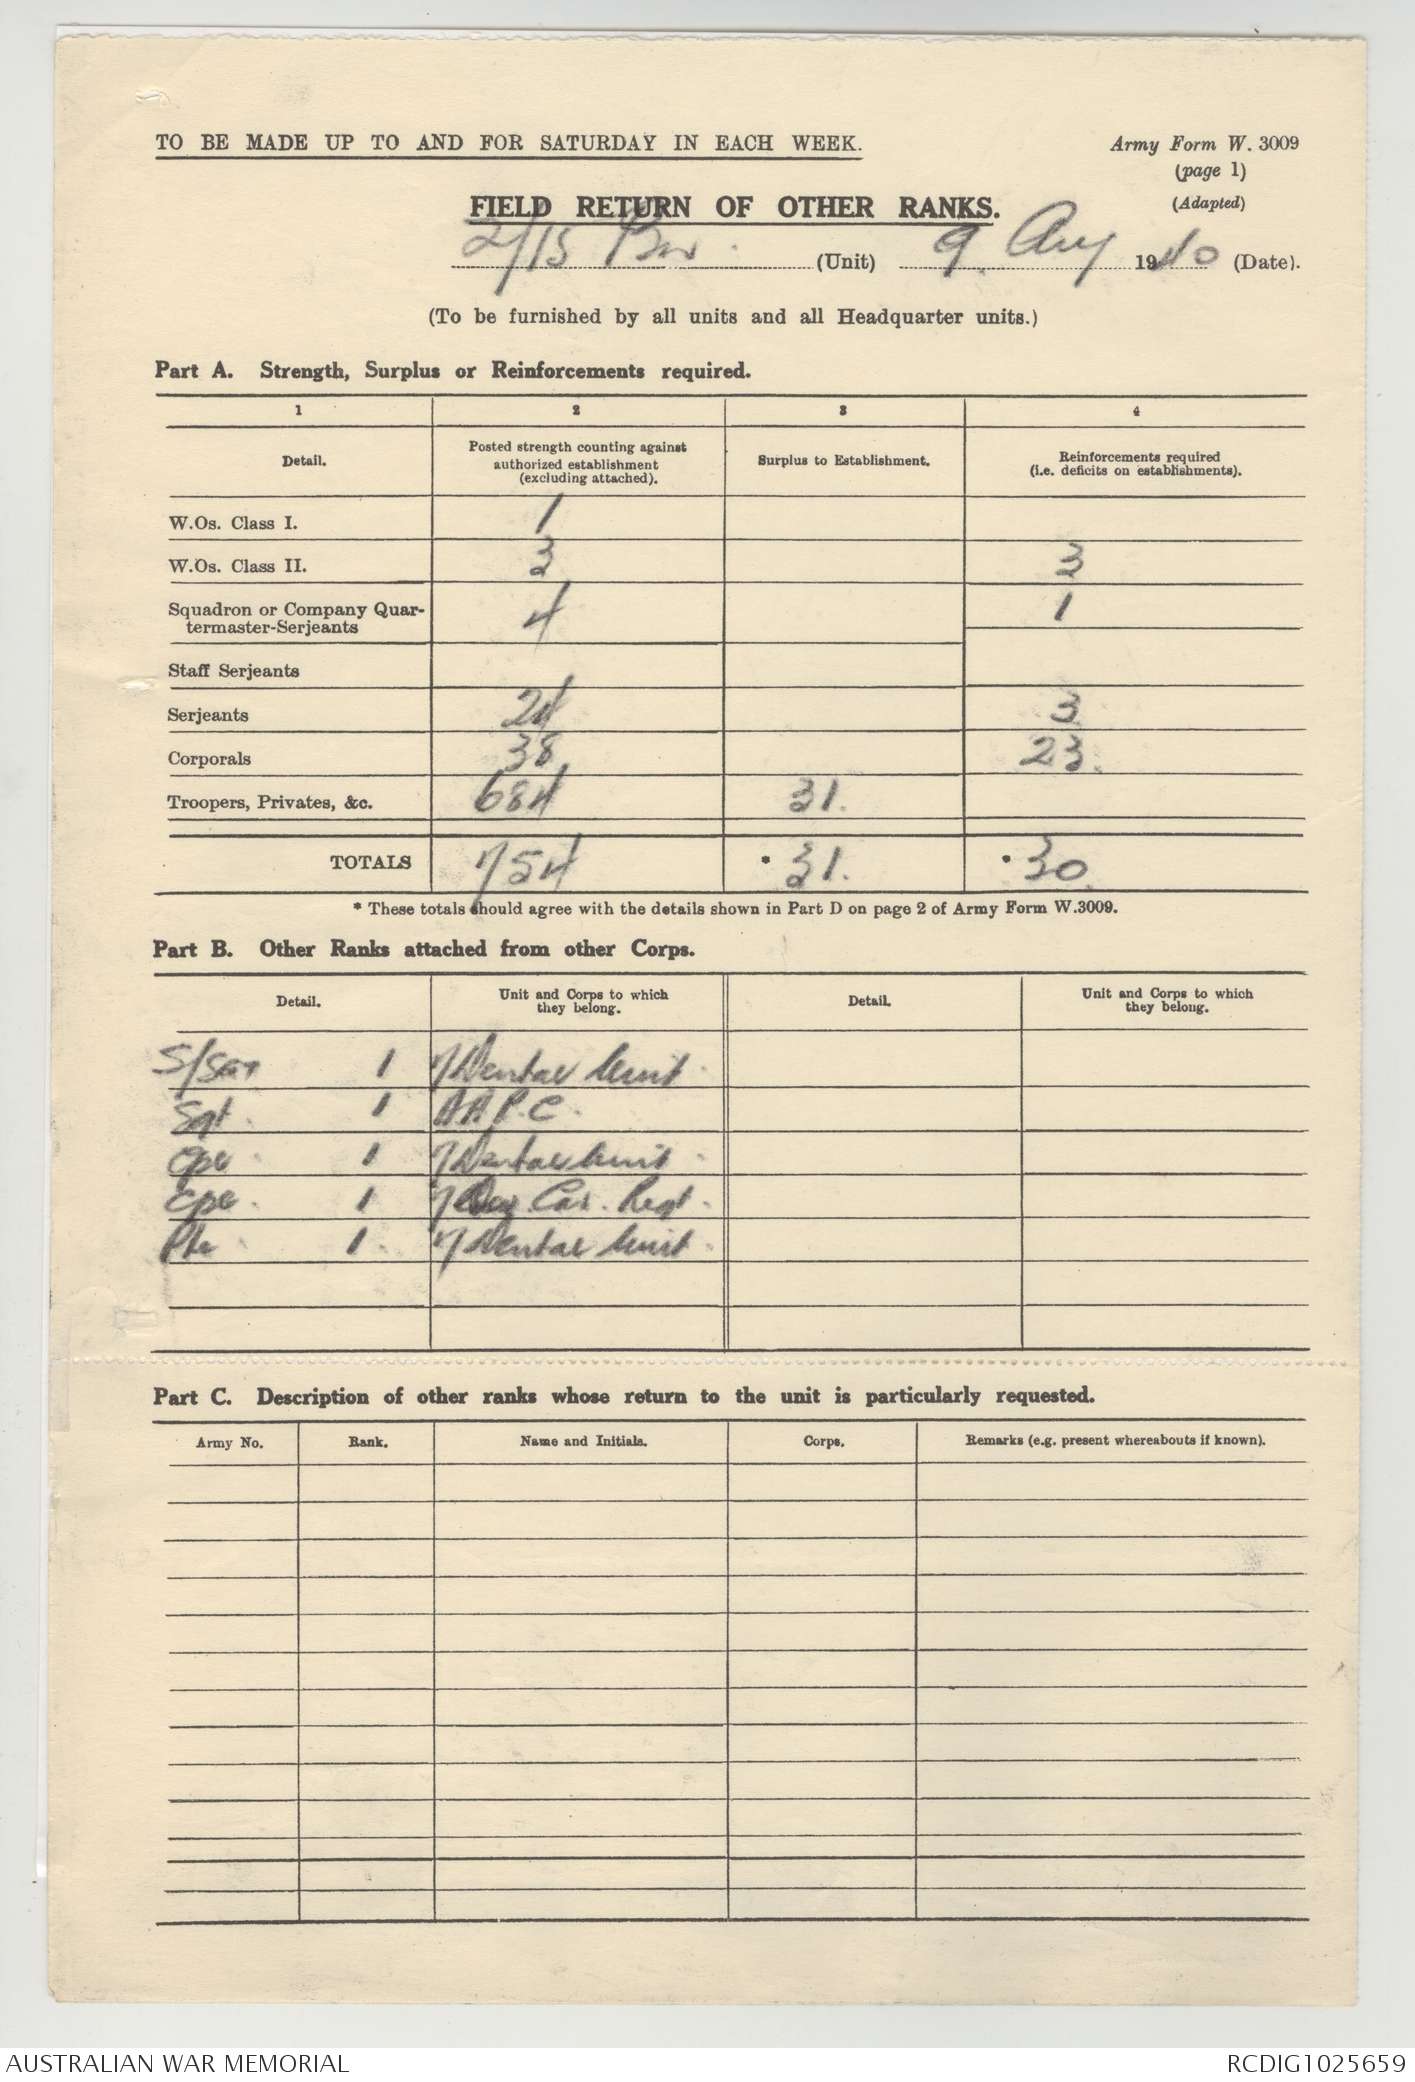 TO BE MADE UP TO AND FOR SATURDAY IN EACH WEEK.
Army Form W. 3009
(page 1)
(Adapted)
FIELD RETURN OF OTHER RANKS.
2/15 Bn. (Unit) 9 Aug 1940 (Date).
(To be furnished by all units and all Headquarter units.)
Part A. Strength, Surplus or Reinforcements required.
1 2 3 4
Detail.
Posted strength counting against
authorized establishment
(excluding attached).
Surplus to Establishment.
Reinforcements required
(i.e. deficits on establishments).
W.Os. Class I. 1
W.Os. Class II. 3 3
Squadron or Company Quar-
termaster-Serjeants 4 1
Staff Serjeants
Serjeants 24 3
Corporals 38 23.
Troopers, Privates, &c. 684 31.
TOTALS 754 * 31. * 30.
* These totals should agree with the details shown in Part D on page 2 of Army Form W.3009.
Part B. Other Ranks attached from other Corps.
Detail.
Unit and Corps to which
they belong.
Detail.
Unit and Corps to which
they belong.
S/Sgt 1 7 Dental Unit.
Sgt. 1 A.A.P.C.
Cpl. 1 7 Dental Unit.
Cpl. 1 7 Div. Cav. Regt.
Pte. 1. 7 Dental Unit.
Part C. Description of other ranks whose return to the unit is particularly requested.
Army No. Rank. Name and Initials. Corps. Remarks (e.g. present whereabouts if known).
AUSTRALIAN WAR MEMORIAL
RCDIG1025659